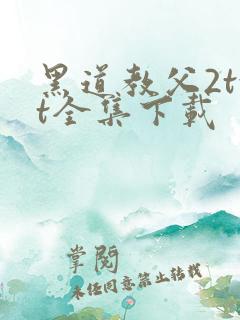 黑道教父2tx
t全集下载
掌阅
未经同意禁止转载